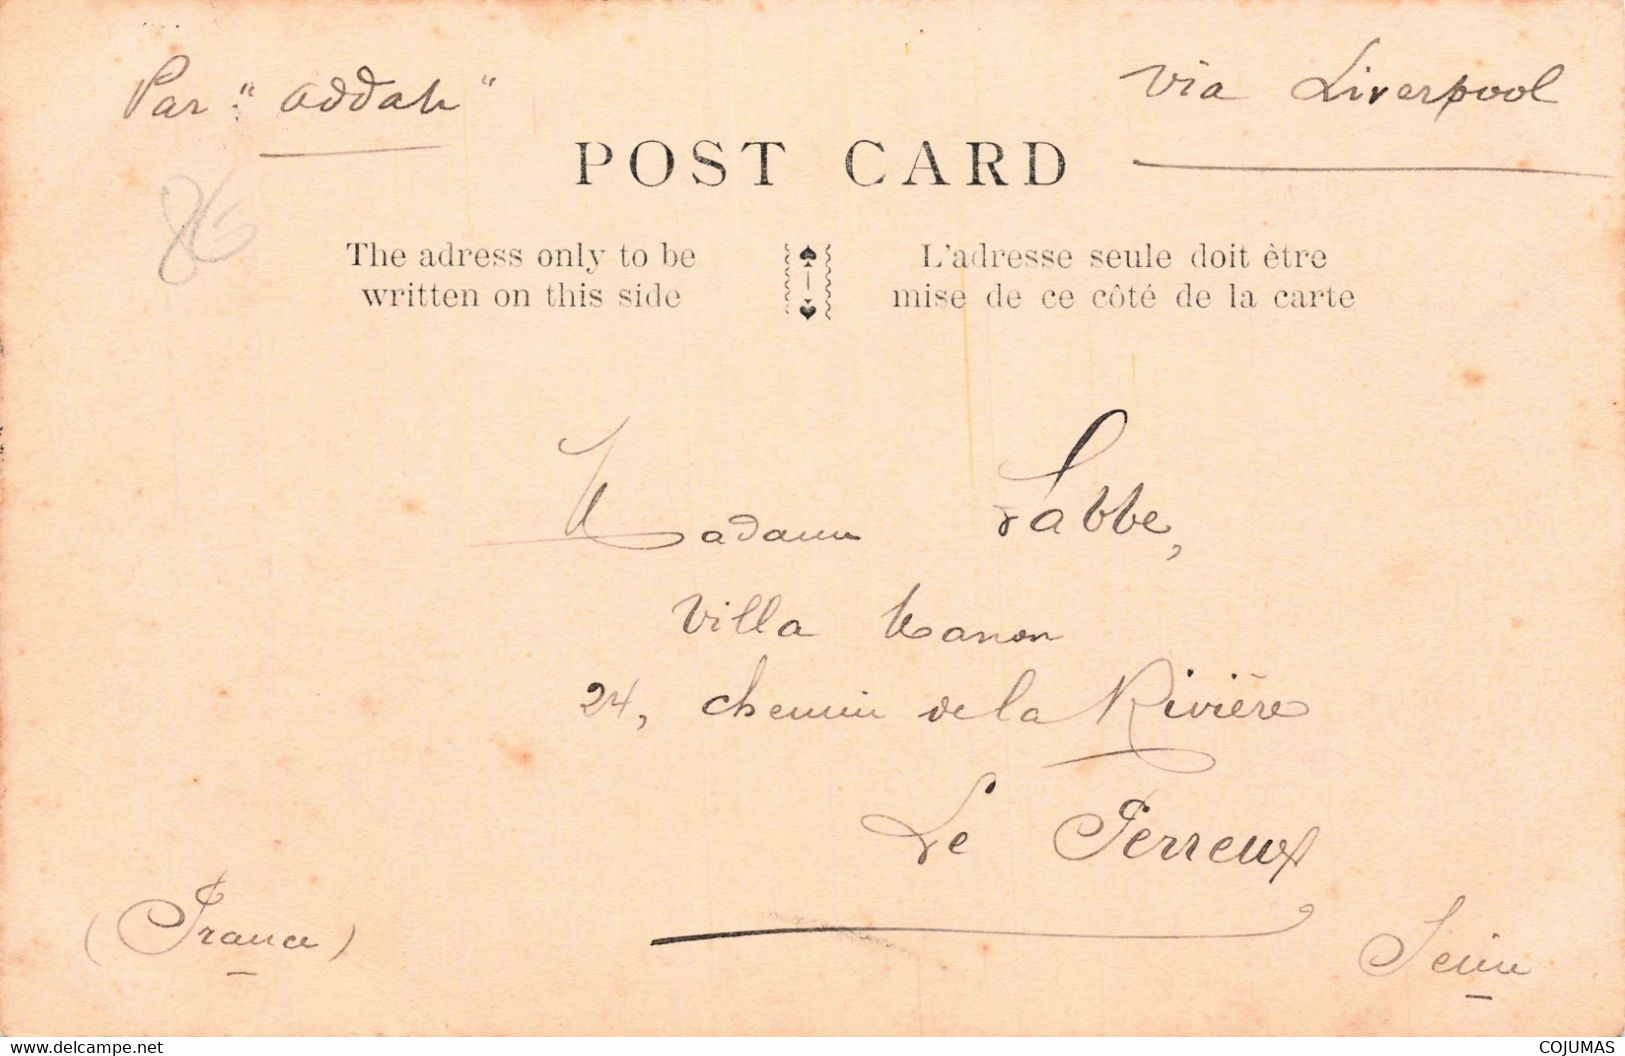 Par "Addah"
via Liverpool
POST CARD
86
The adress only to be
written on this side
L'adresse seule doit être
mise de ce côté de la carte
Madame Labbe,
Villa Manon
24, chemin de la Rivière
Le Perreux
(France)
Seine
www.delcampe.net
COJUMAS